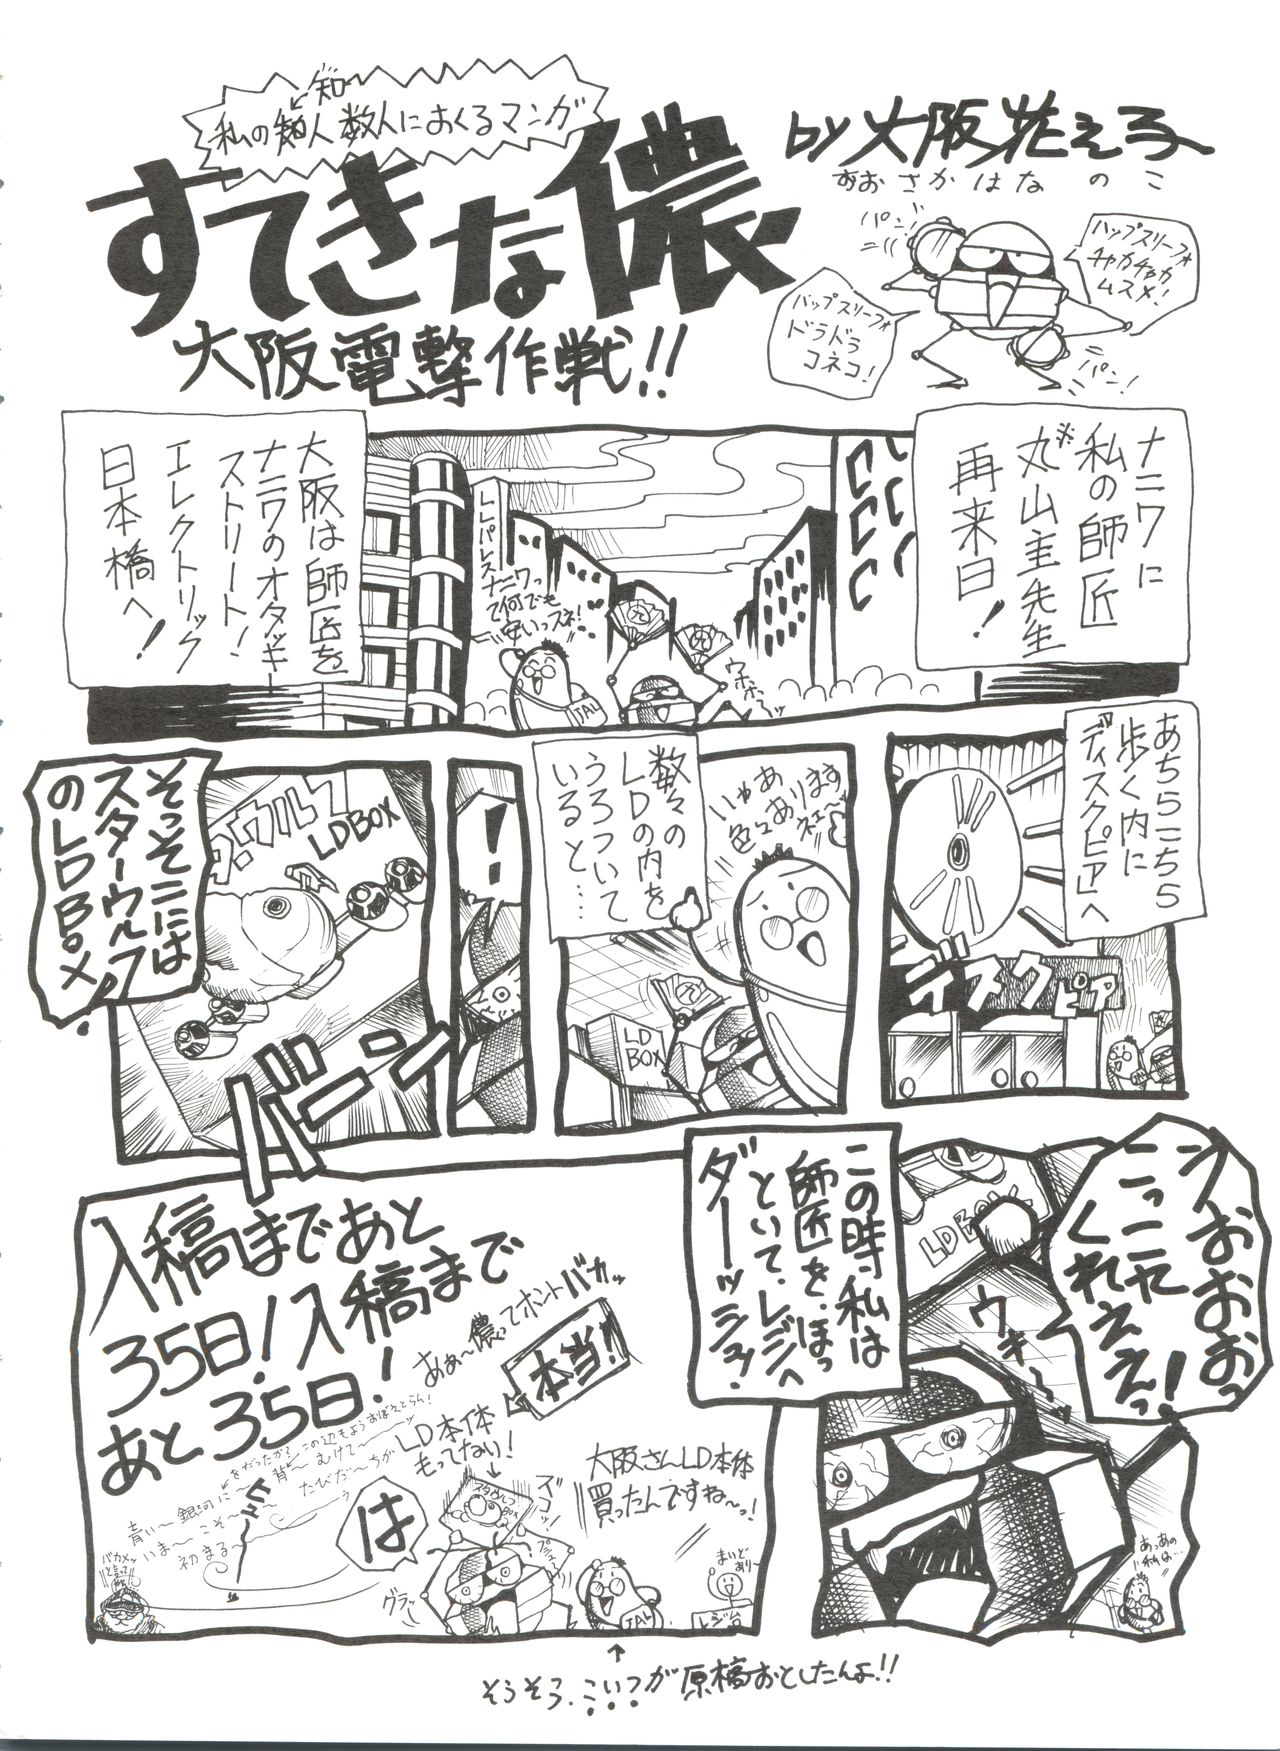 私の知人数人におくるマンガ
知
すてきな儂
大阪電撃作戦!!
by 大阪花え子
おおさかはなのこ
パン!
ハップスリーフォ
チャカチャカ
ムスメ!
バップスリーフォ
ドラドラ
コネコ!
パン!
ナニワに
私の師匠
※丸山主先生
再来日!
大阪は師匠を
ナニワのオタッキー
ストリート!
エレクトリック
日本橋へ!
LLパレス
ナニワっ
て何でも
安いっスネ!
ウホホ〜ッ
JAL
あちらこちら
歩く内に
「ディスクピア」へ
ディスクピア
いやぁあ
色々あります
ネェ〜
数々の
LDの内を
うろついて
いると…
LD
BOX
!
そっそこには
スターウルフ
のLDBOX!
LDBOX
バーン
うおおおおっ
こっこれ
くれえええっ!
LDBOX
ウキ〜
あっあの
私は…
この時私は
師匠を、ほっ
といて、レジへ
ダーッシュ!
入稿まであと
35日!入稿まで
あと35日!
あぁ〜儂ってホントバカッ
本当!!
LD本体
もってない!
大阪さんLD本体
買ったんですね〜っ!
は
ヒュー
青い〜銀河に〜
いま〜こそ〜
初まる〜
グラッ
JAL
まいど
あり〜
レジ台
↑
そうそう、こいつが原稿おとしたんよ!!